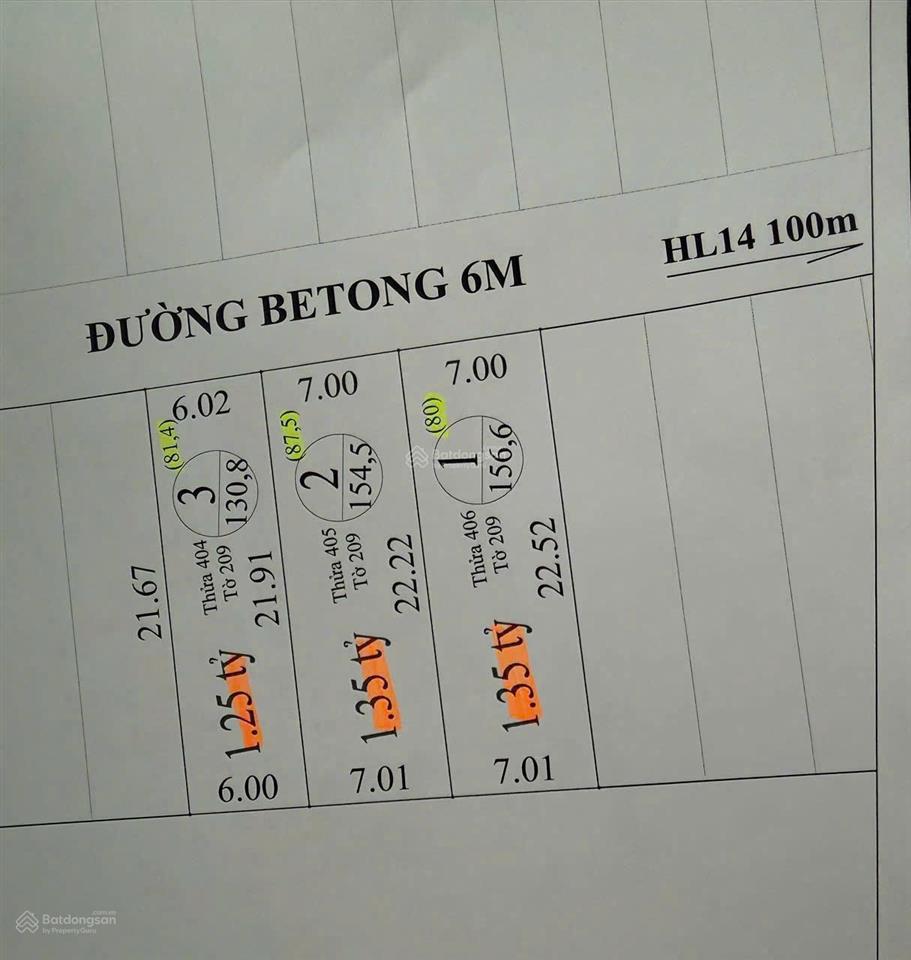 HL14 100m
ĐƯỜNG BETONG 6M
6.02
(81,4)
3
130,8
Thửa 404
Tờ 209
21.67
21.91
1.25 tỷ
6.00
7.00
(87,5)
2
154,5
Thửa 405
Tờ 209
22.22
1.35 tỷ
7.01
7.00
(80)
1
156,6
Thửa 406
Tờ 209
22.52
1.35 tỷ
7.01
Batdongsan
Batdongsan.com.vn
by PropertyGuru